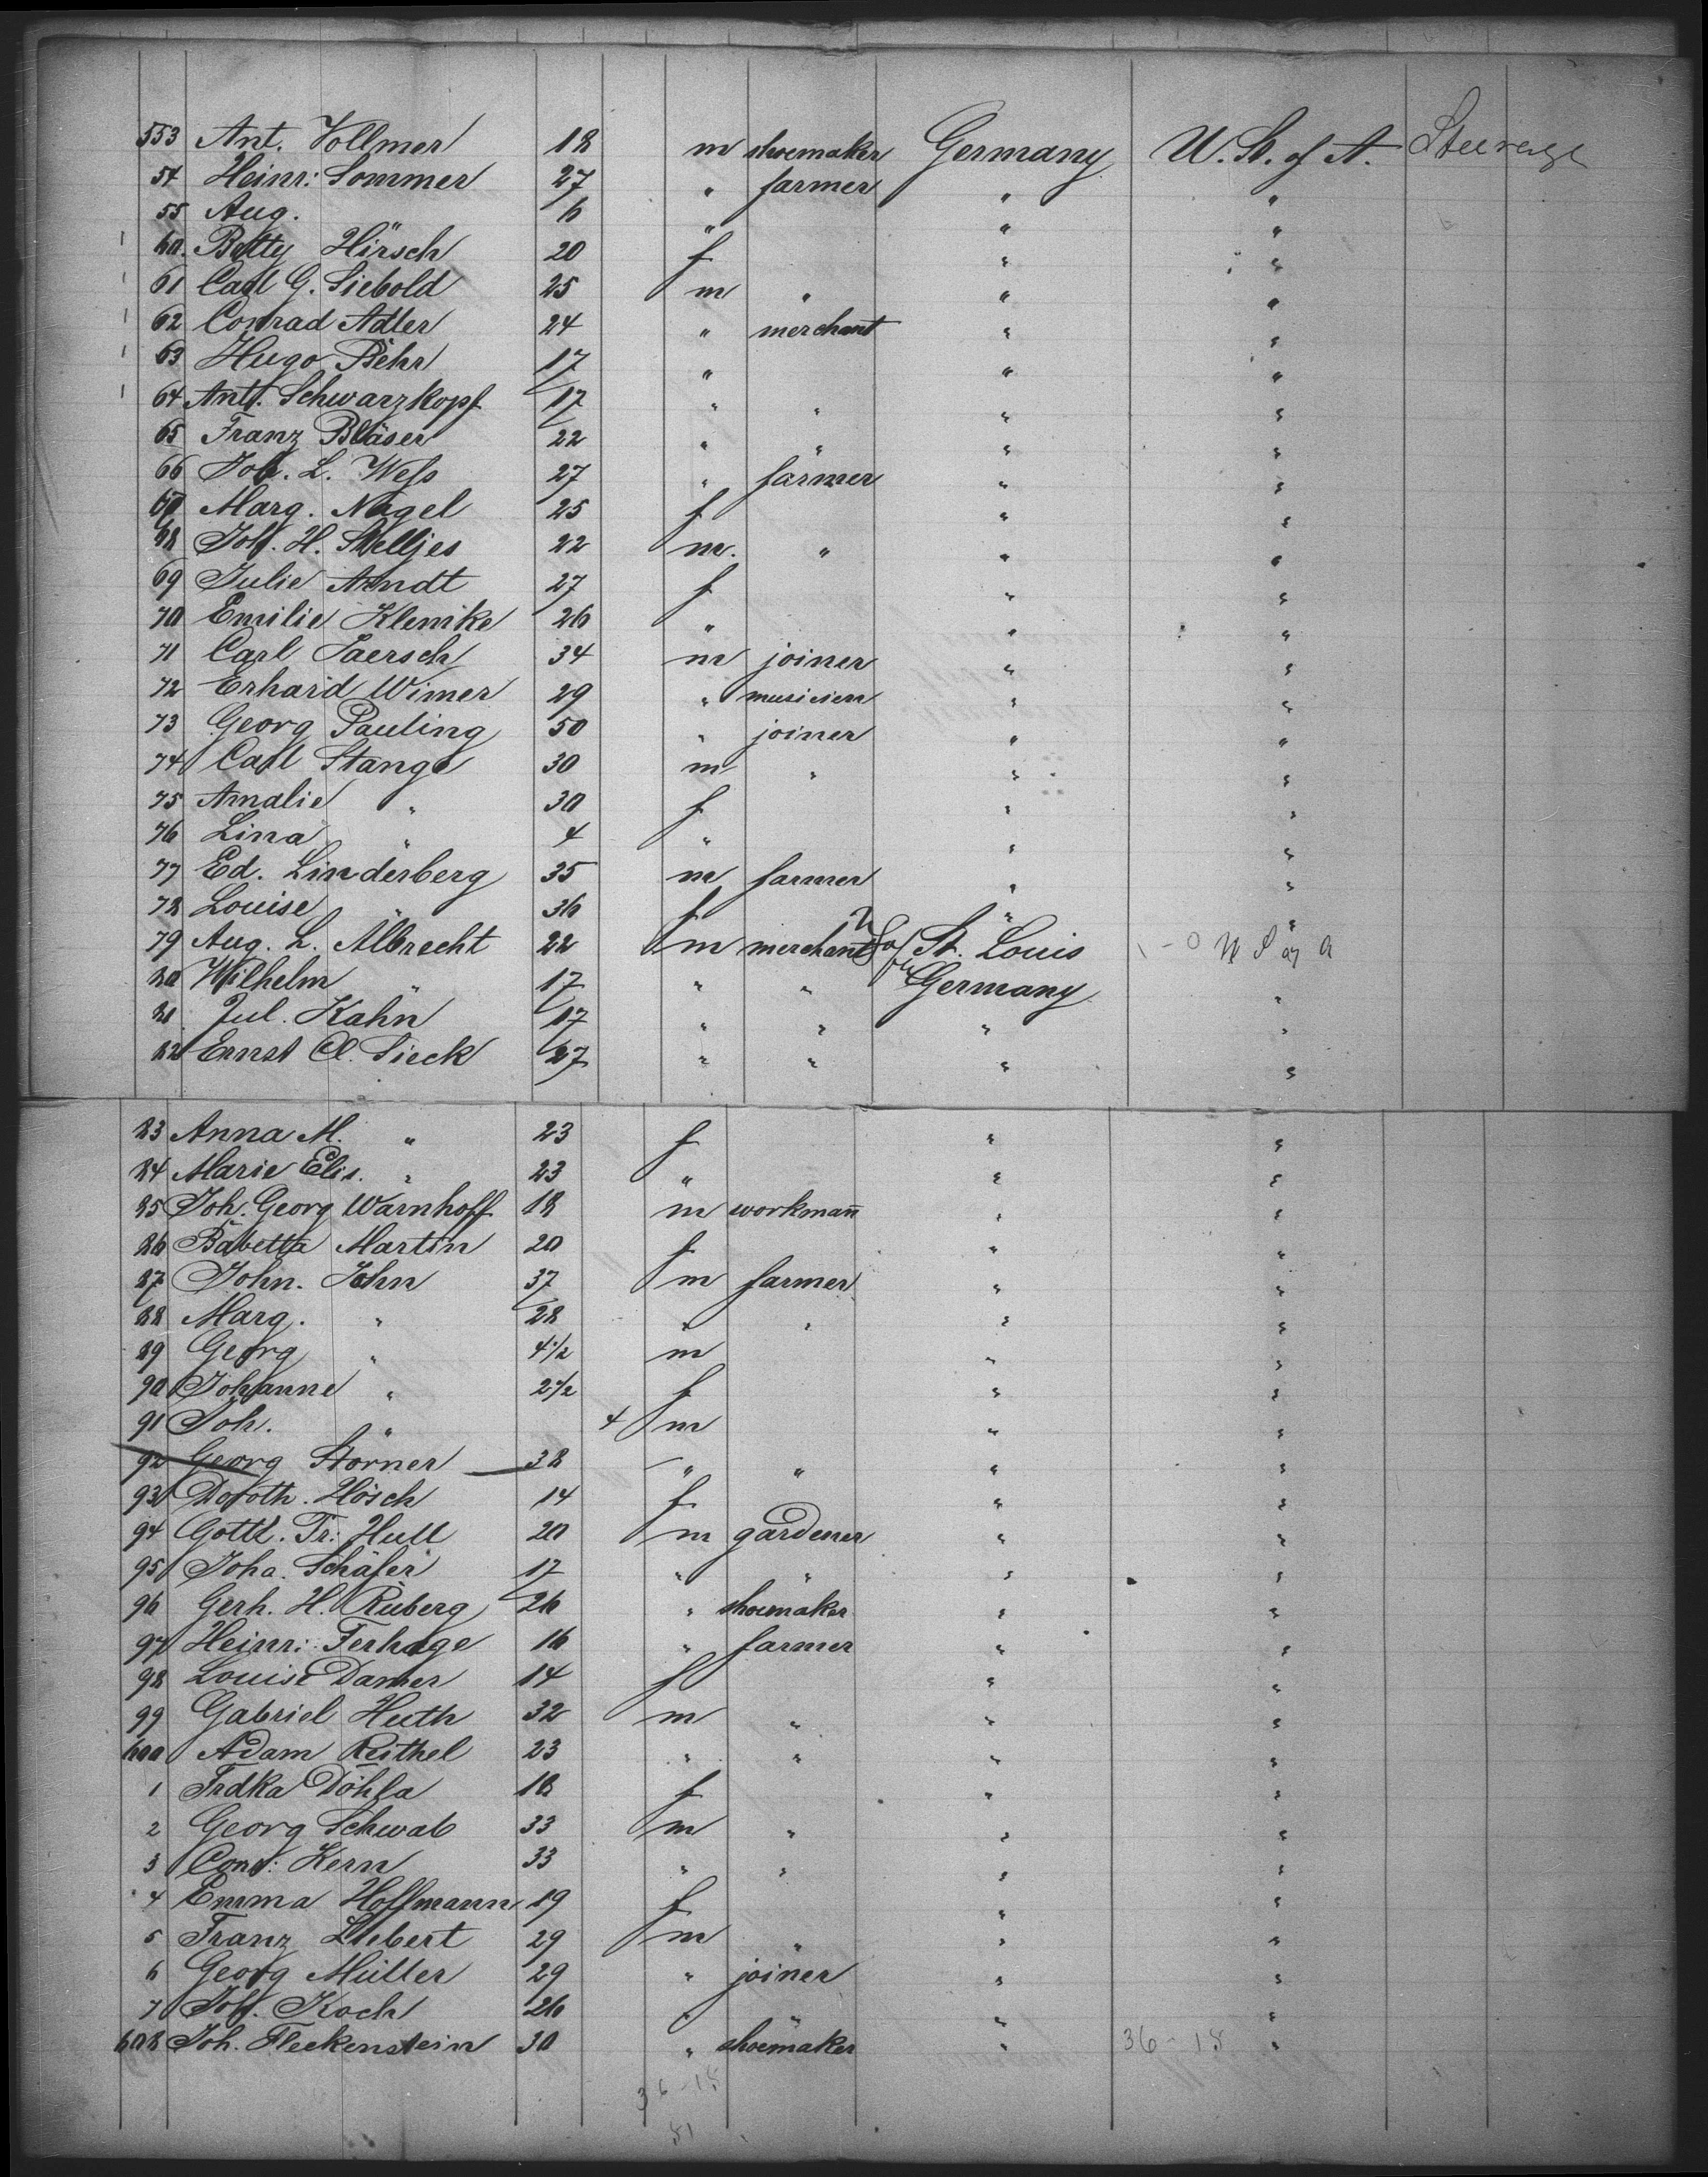 553 Ant. Vollmer 18 m shoemaker Germany U. St. of A. Steerage
54 Heinr: Sommer 27 " farmer " "
55 Aug. 6 " " "
60. Betty Hirsch 20 f " "
61 Carl G. Siebold 25 m " " "
62 Conrad Adler 24 " merchant " "
63 Hugo Behr 17 " " "
64 Ant. Schwarzkopf 17 " " " "
65 Franz Bläser 22 " " " "
66 Joh. L. Weſs 27 " farmer " "
67 Marg. Nagel 25 f " "
68 Joh. H. Stelljes 22 m. " " "
69 Julie Arndt 27 f " "
70 Emilie Klemke 26 " " "
71 Carl Jaersch 34 m joiner " "
72 Erhard Wimer 29 " musicien " "
73 Georg Pauling 50 " joiner " "
74 Carl Stange 30 m " " "
75 Amalie " 30 f " "
76 Lina " 4 " " "
77 Ed. Linderberg 35 m farmer " "
78 Louise " 36 f " "
79 Aug. L. Albrecht 22 m merchant St. Louis U S of A
80 Wilhelm " 17 " " Germany "
81 Jul. Kahn 17 " " " "
82 Ernst Cl. Sieck 27 " " " "
83 Anna M. " 23 f " "
84 Marie Elis. " 23 " " "
85 Joh. Georg Warnhoff 18 m workmann " "
86 Babetta Martin 20 f " "
87 John. John 37 m farmer " "
88 Marg. " 28 " " " "
89 Georg " 4 1/2 m " "
90 Johanne " 2 1/2 f " "
91 Joh. " 4 m " "
92 Georg Störner 38 " " " "
93 Doroth. Hösch 14 f " "
94 Gottl. Fr: Hull 20 m gardener " "
95 Joha. Schäfer 17 " " " "
96 Gerh. H. Ruberg 26 " shoemaker " "
97 Heinr: Terhage 16 " farmer " "
98 Louise Damer 14 f " "
99 Gabriel Huth 32 m " " "
600 Adam Reithel 23 " " " "
1 Frdka Döhla 18 f " "
2 Georg Schwab 33 m " " "
3 Conr: Kern 33 " " " "
4 Emma Hoffmann 19 f " "
5 Franz Liebert 29 m " " "
6 Georg Müller 29 " joiner " "
7 Joh. Koch 26 " " " "
608 Joh. Fleckenstein 30 " shoemaker " 36-18 "
36-18
81